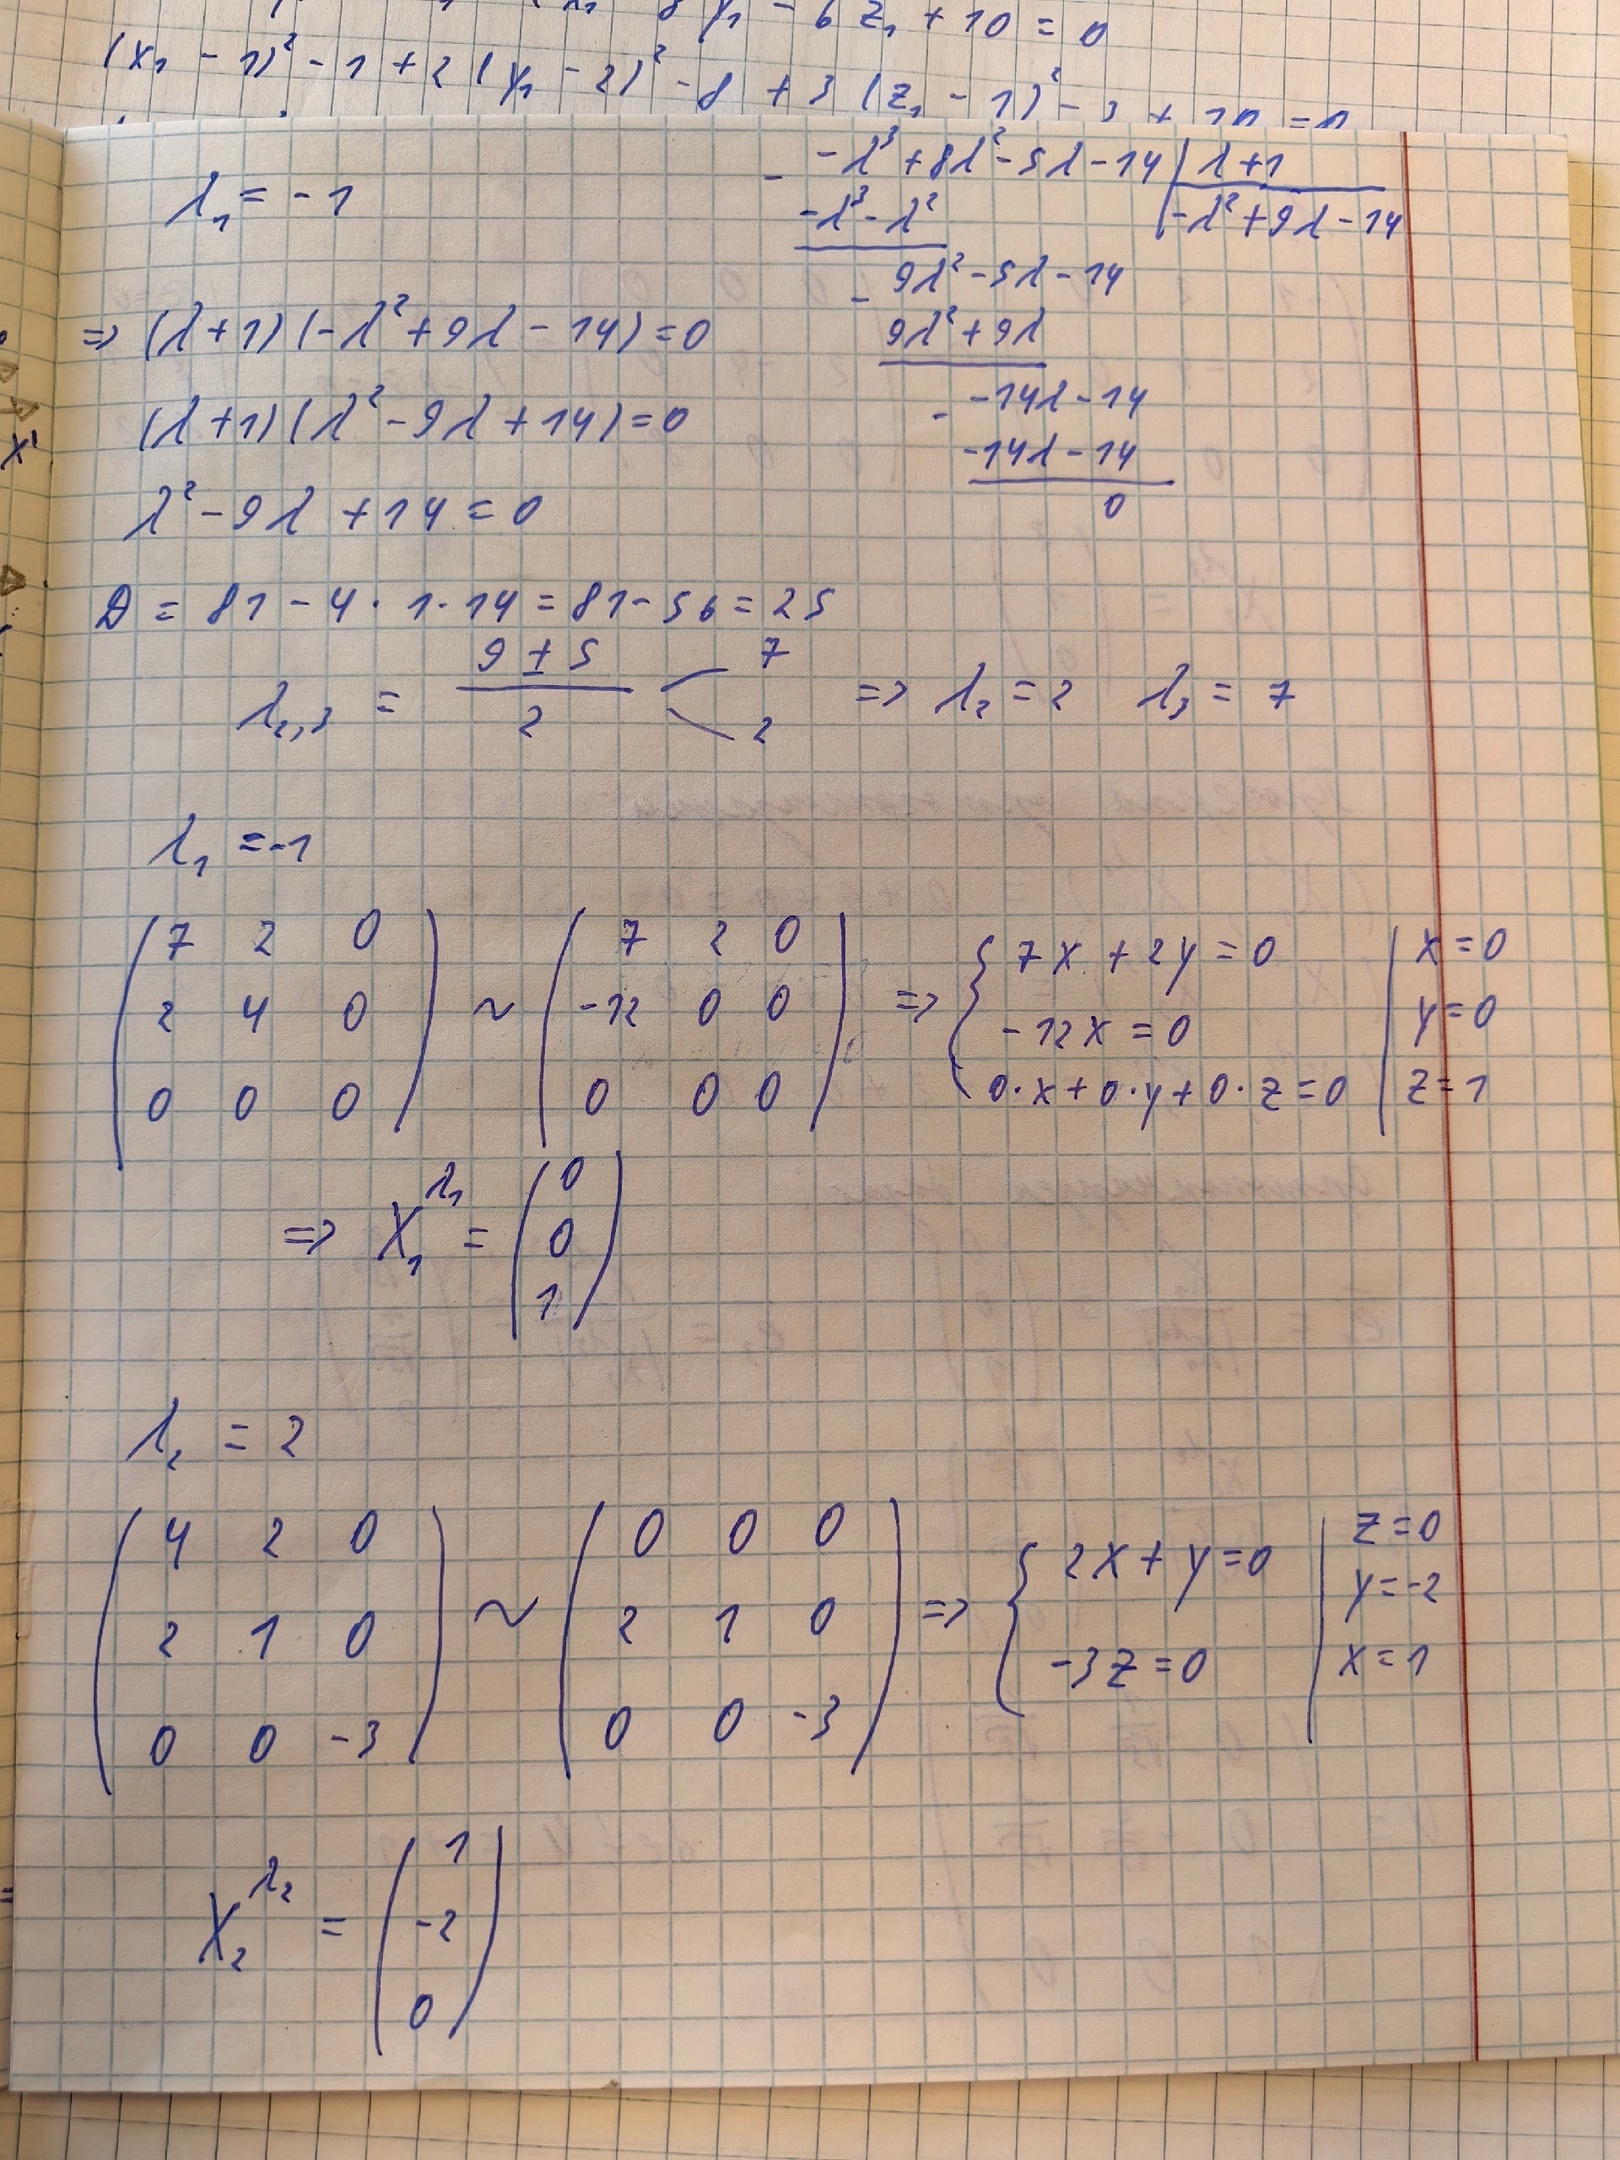 y₁ - 6 z₁ + 10 = 0
(x₁ - 1)² - 1 + 2 (y₁ - 2)² - 8 + 3 (z₁ - 1)² - 3 + 10 = 0
λ₁ = -1
- -λ³ + 8λ² - 5λ - 14 | λ + 1
-λ³ - λ² | -λ² + 9λ - 14
- 9λ² - 5λ - 14
9λ² + 9λ
- -14λ - 14
-14λ - 14
0
=> (λ + 1) (-λ² + 9λ - 14) = 0
(λ + 1) (λ² - 9λ + 14) = 0
λ² - 9λ + 14 = 0
D = 81 - 4 · 1 · 14 = 81 - 56 = 25
λ₂,₃ = (9 ± 5) / 2 < 7 2 => λ₂ = 2 λ₃ = 7
λ₁ = -1
( 7 2 0 ) ( 7 2 0 ) { 7x + 2y = 0 | x = 0
( 2 4 0 ) ~ ( -12 0 0 ) => { -12x = 0 | y = 0
( 0 0 0 ) ( 0 0 0 ) { 0·x + 0·y + 0·z = 0 | z = 1
=> X₁^λ₁ = ( 0
0
1 )
λ₂ = 2
( 4 2 0 ) ( 0 0 0 ) { 2x + y = 0 | z = 0
( 2 1 0 ) ~ ( 2 1 0 ) => { | y = -2
( 0 0 -3 ) ( 0 0 -3 ) { -3z = 0 | x = 1
X₂^λ₂ = ( 1
-2
0 )